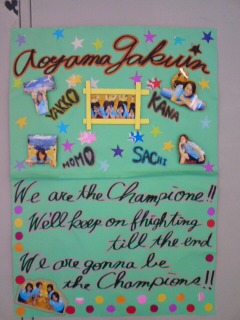 Aoyama Gakuin
YAKKO
KANA
MOMO
SACHI
We are the Champione!!
We'll keep on fhighting
till the end
We are gonna be
the Champions!!